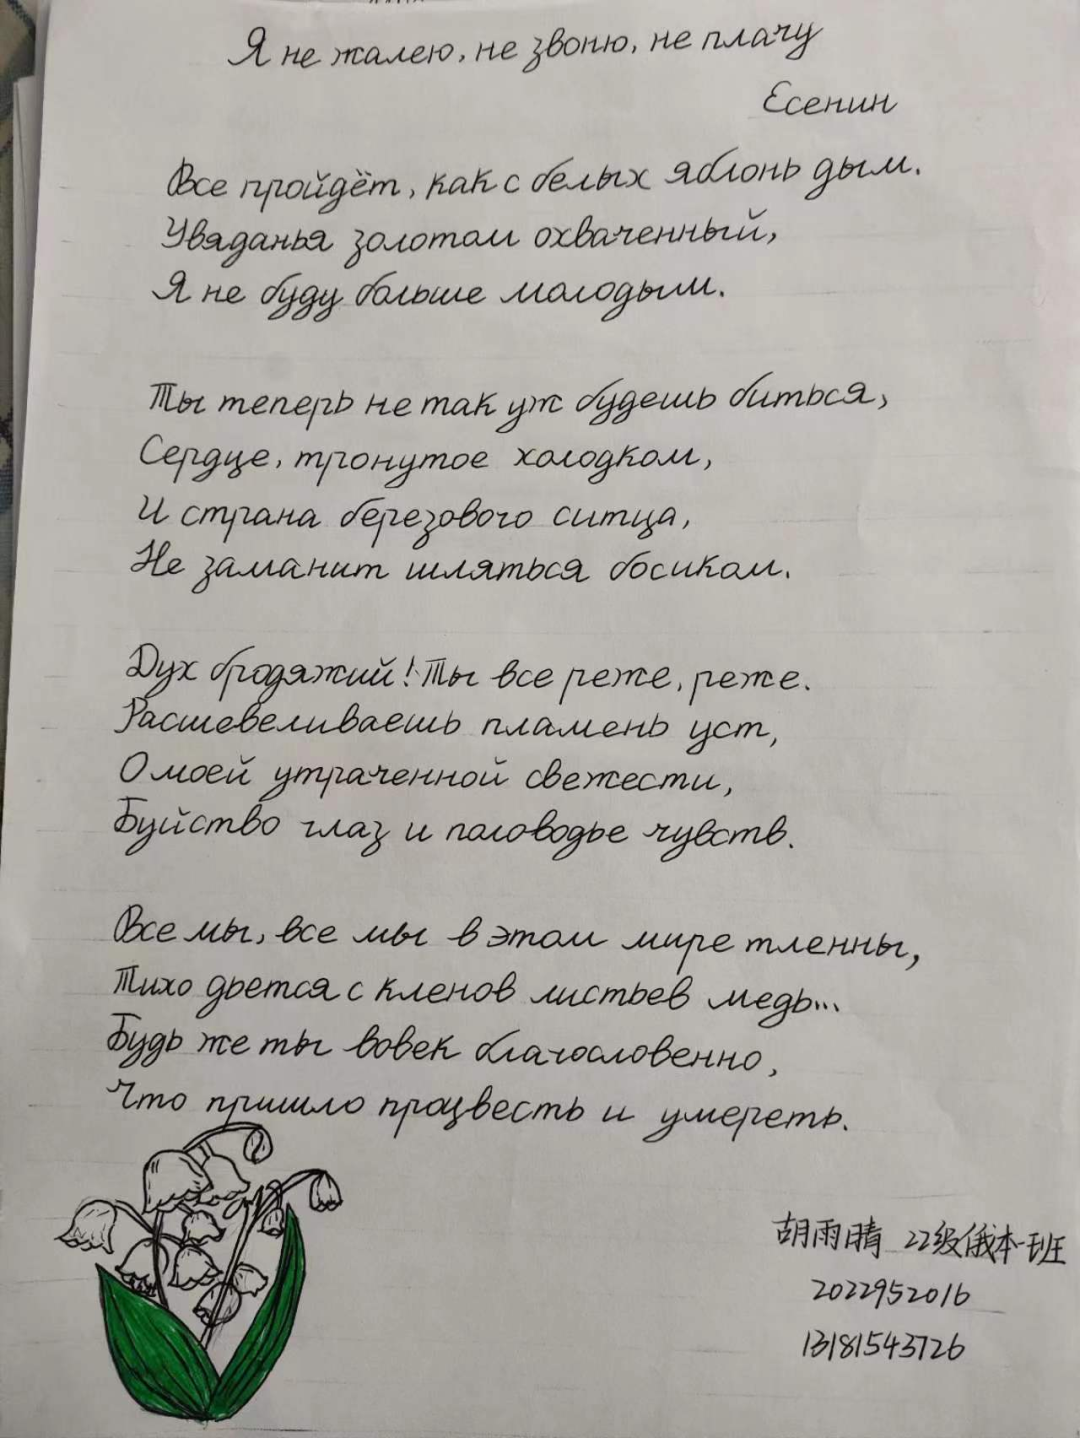 Я не жалею, не звоню, не плачу
Есенин
Все пройдёт, как с белых яблонь дым.
Увяданья золотом охваченный,
Я не буду больше молодым.
Ты теперь не так уж будешь биться,
Сердце, тронутое холодком,
И страна березового ситца,
Не заманит шляться босиком.
Дух бродяжий! Ты все реже, реже.
Расшевеливаешь пламень уст,
О моей утраченной свежести,
Буйство глаз и половодье чувств.
Все мы, все мы в этом мире тленны,
Тихо дьется с кленов листьев медь...
Будь же ты вовек благословенно,
Что пришло процвесть и умереть.
胡雨晴 22级俄本一班
2022952016
13181543726